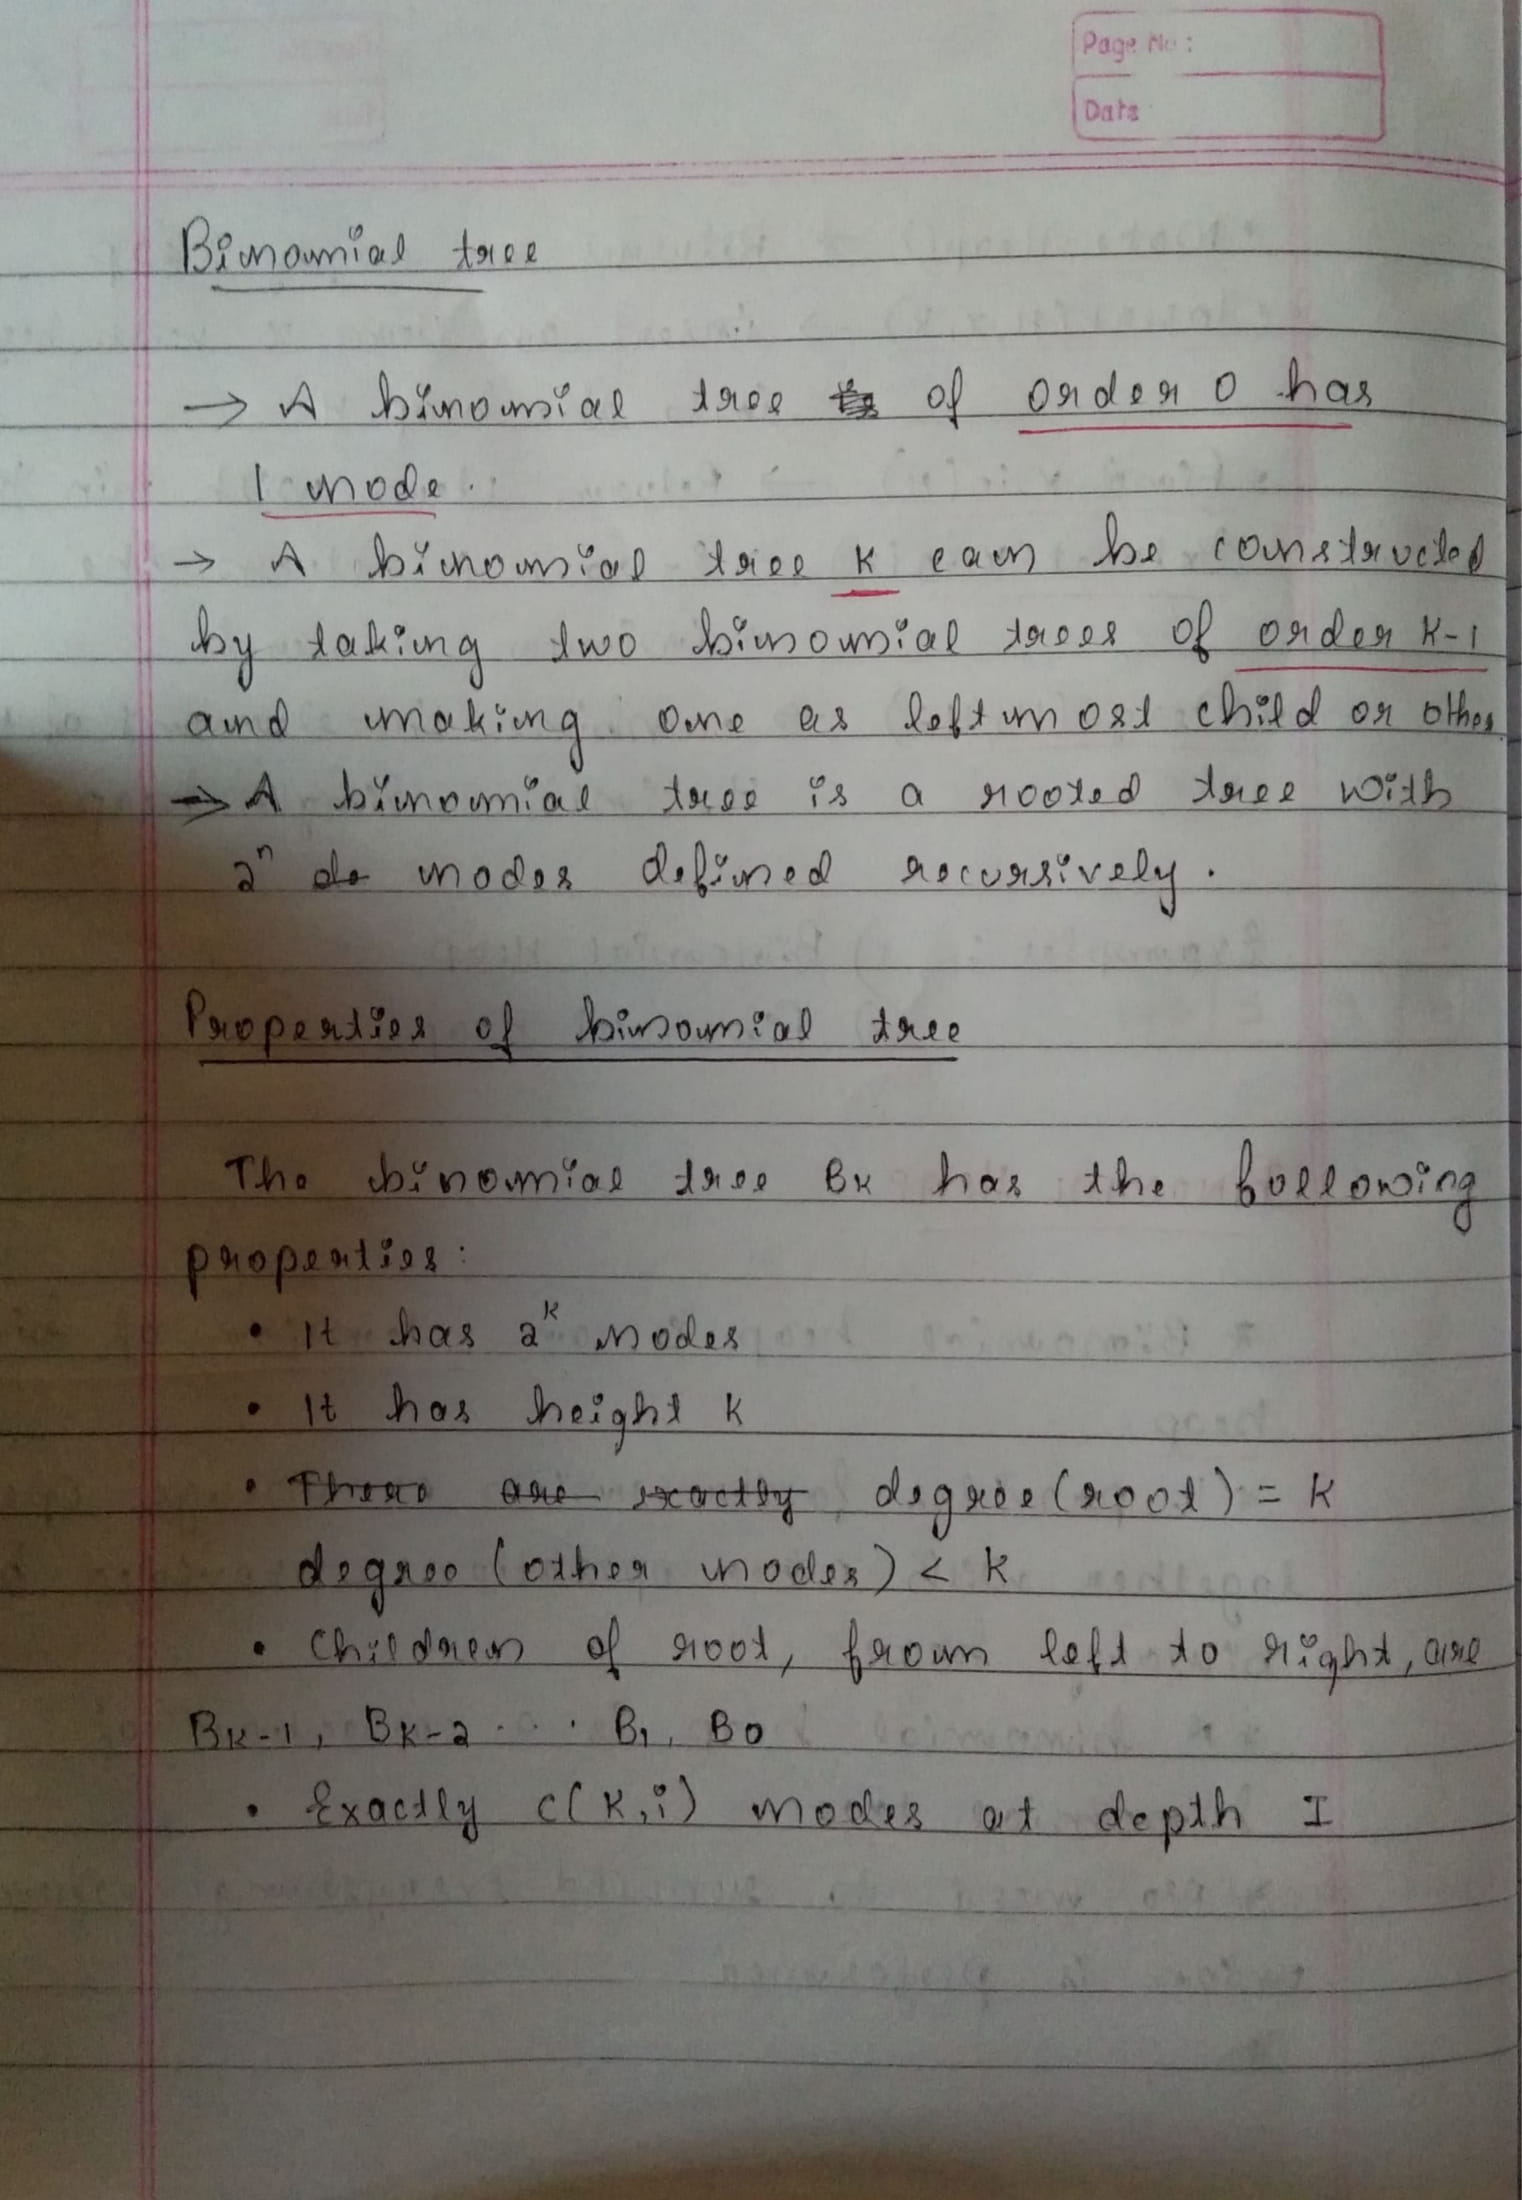 Page No :
Date
Binomial tree
→ A binomial tree of order 0 has
1 node.
→ A binomial tree K can be constructed
by taking two binomial trees of order K-1
and making one as leftmost child or other
→ A binomial tree is a rooted tree with
2ⁿ de nodes defined recursively.
Properties of binomial tree
The binomial tree BK has the following
properties:
• It has 2ᴷ nodes
• It has height K
• There are exactly degree (root) = K
degree (other nodes) < K
• Children of root, from left to right, are
BK-1, BK-2 . . . B1, B0
• Exactly C(K,i) nodes at depth I